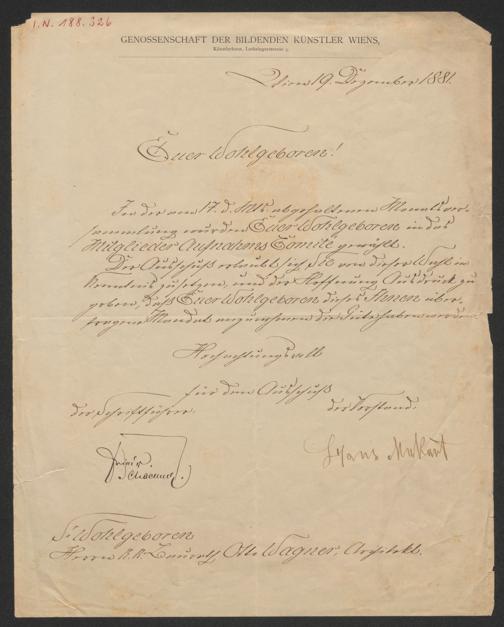 I.N. 188.326
GENOSSENSCHAFT DER BILDENDEN KÜNSTLER WIENS,
Künstlerhaus, Lothringerstrasse 9.
Wien 19. Dezember 1881.
Euer Wohlgeboren!
In der am 17. d. Mts. abgehaltenen Monatsver-
sammlung wurden Euer Wohlgeboren in das
Mitglieder-Aufnahms Comité gewählt.
Der Ausschuß erlaubt sich, Sie von dieser Wahl in
Kenntnis zu setzen, und der Hoffnung Ausdruck zu
geben, daß Euer Wohlgeboren dieses Ihnen über-
tragene Mandat anzunehmen die Güte haben werden.
Hochachtungsvoll
für den Ausschuß
der Schriftführer:
der Vorstand:
Hans Makart
Sr Wohlgeboren
Herrn k. k. Otto Wagner, Architekt.